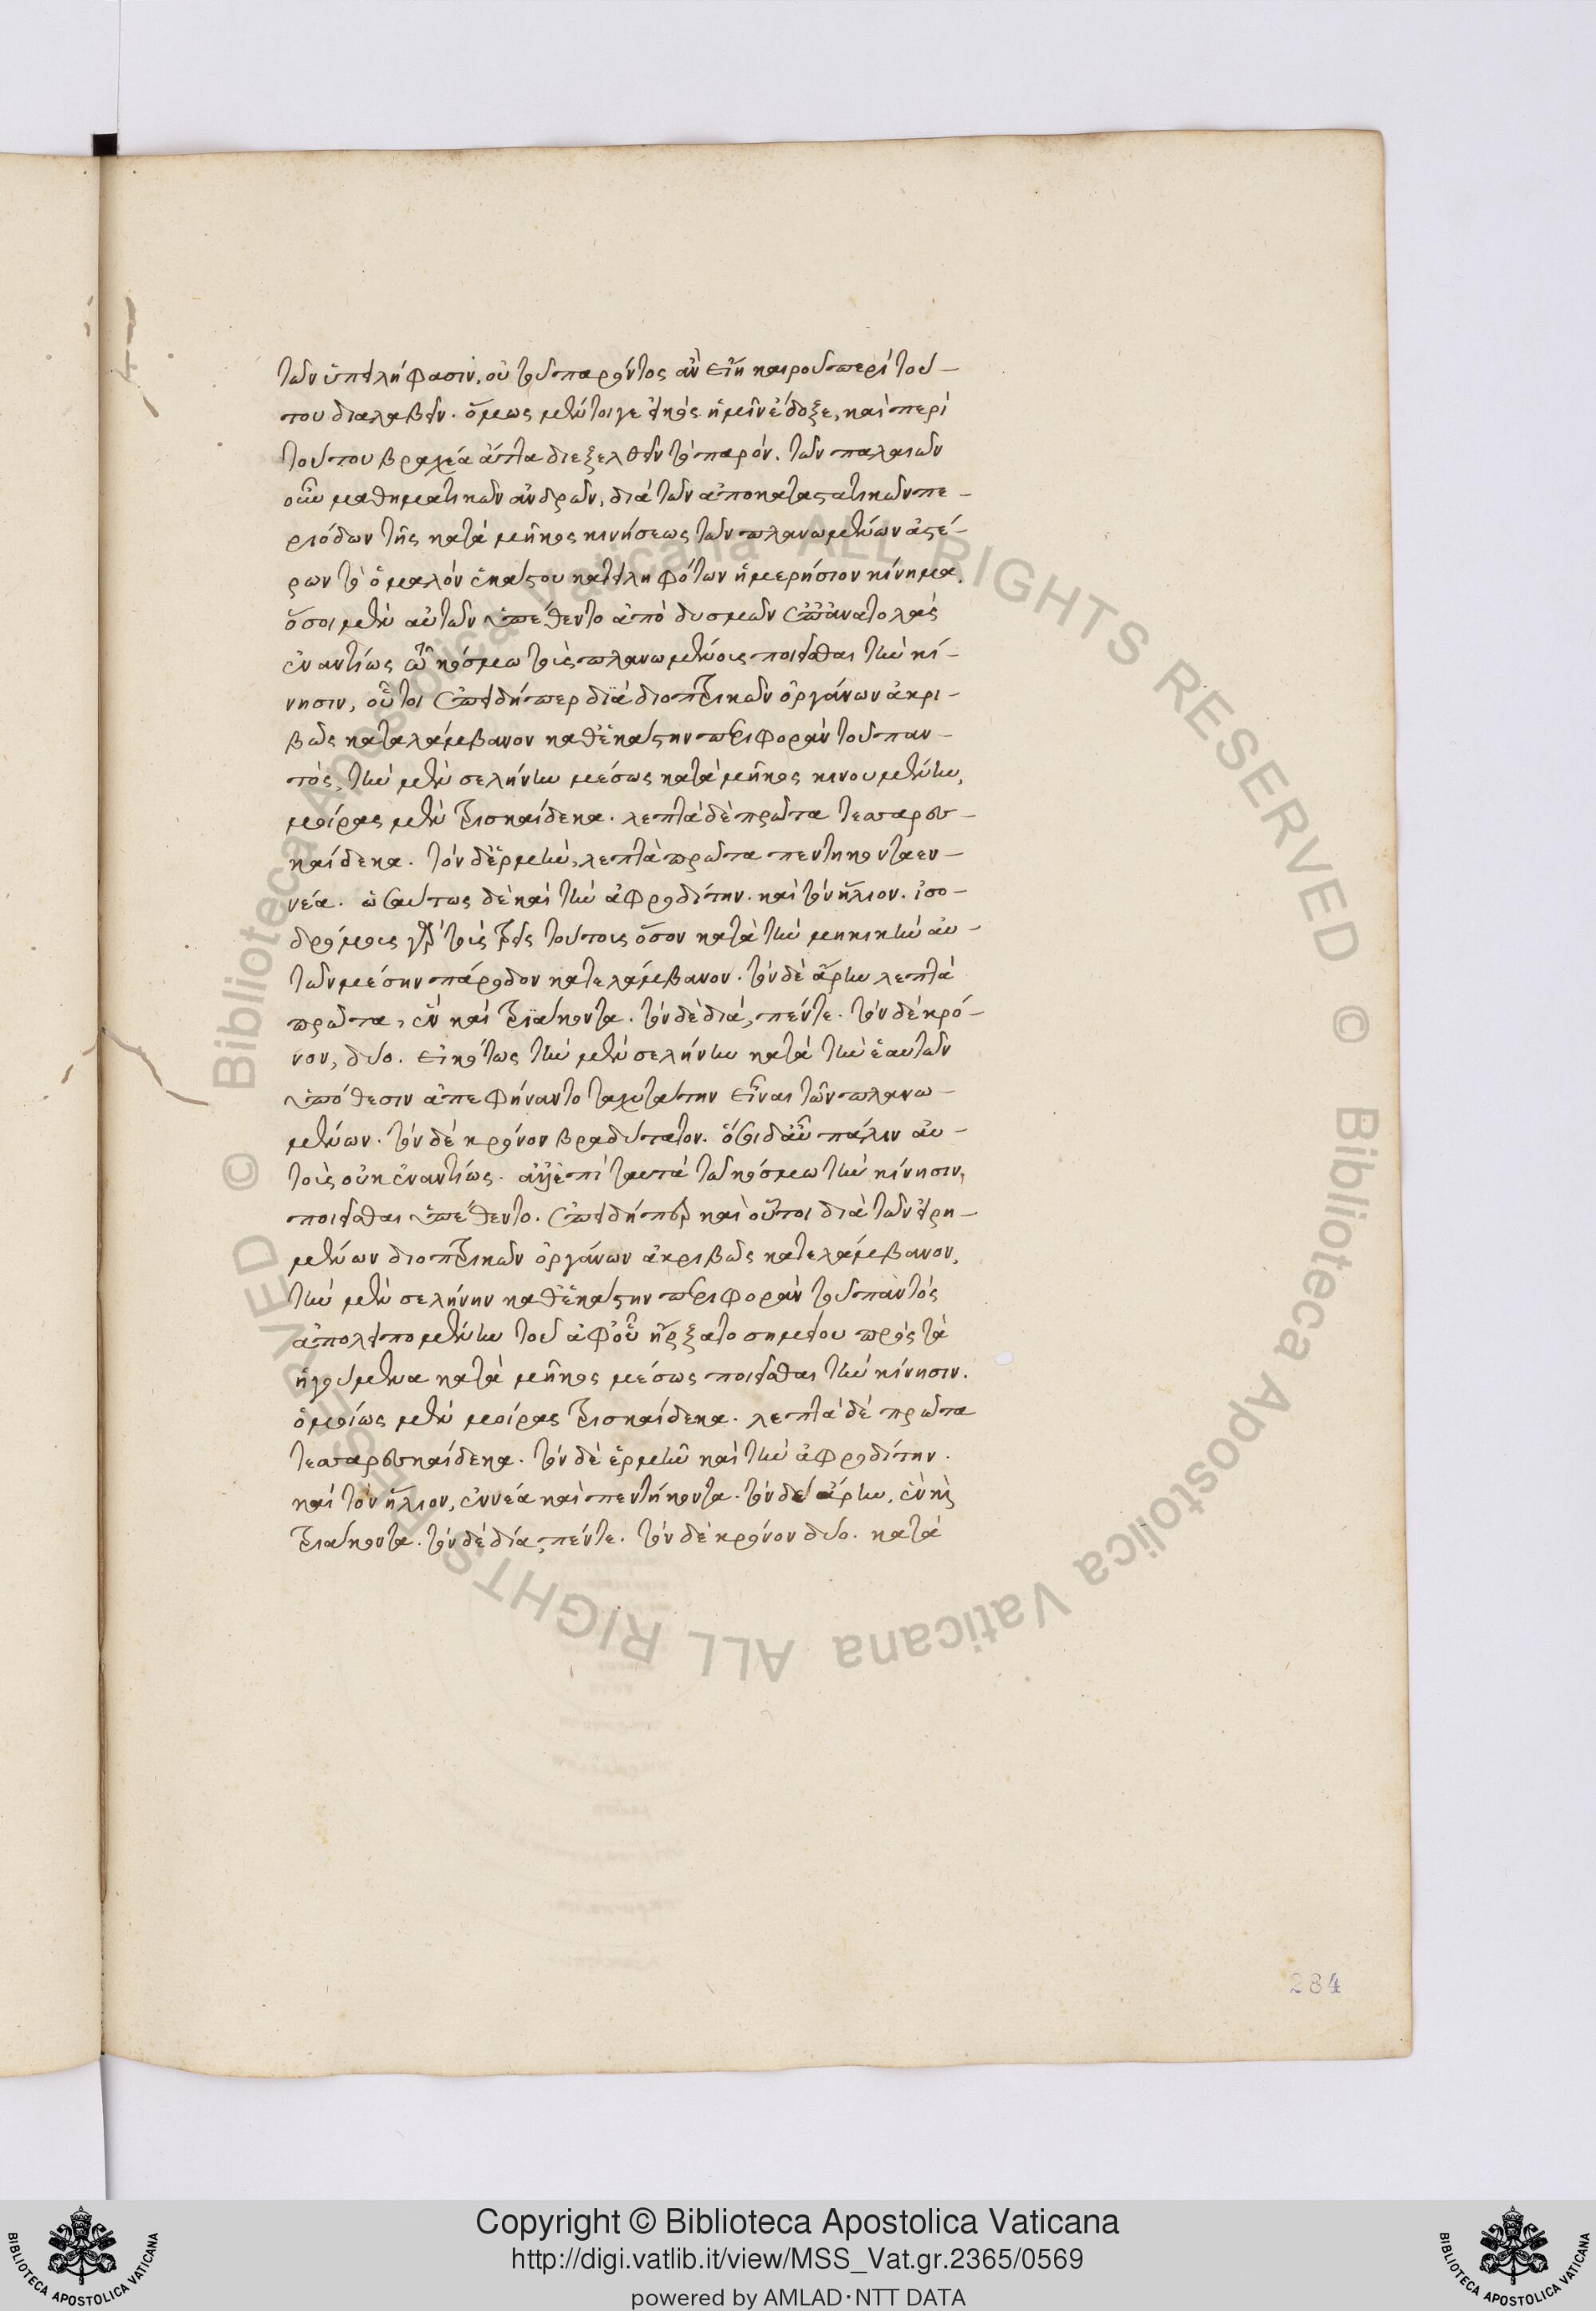 τῶν ὑπειλήφασιν, οὐ τοῦ παρόντος ἂν εἴη καιροῦ περὶ τού-
του διαλαβεῖν. ὅμως μέντοιγε εἰκὸς ἡμῖν ἔδοξε, καὶ περὶ
τούτου βραχέα ἄττα διεξελθεῖν τὸ παρόν. τῶν παλαιῶν
οὖν μαθηματικῶν ἀνδρῶν, διὰ τῶν ἀποκαταστατικῶν πε-
ριόδων τῆς κατὰ μῆκος κινήσεως τῶν πλανωμένων ἀστέ-
ρων τὸ ὁμαλὸν ἑκάστου κατειληφότων ἡμερήσιον κίνημα,
ὅσοι μὲν αὐτῶν ὑπέθεντο ἀπὸ δυσμῶν ἐπ' ἀνατολὰς
ἐναντίως τῶ κόσμω τοὺς πλανωμένους ποιεῖσθαι τὴν κί-
νησιν, οὗτοι ἐπειδήπερ διὰ διοπτρικῶν ὀργάνων ἀκρι-
βῶς καταλάμβανον καθ' ἑκάστην περιφορὰν τοῦ παν-
τός, τὴν μὲν σελήνην μέσως κατὰ μῆκος κινουμένην,
μοίρας μὲν τρισκαίδεκα. λεπτὰ δὲ πρῶτα τεσσαρσ-
καίδεκα. τὸν δ' ἑρμῆν, λεπτὰ πρῶτα πεντηκονταεν-
νέα. ὡσαύτως δὲ καὶ τὴν ἀφροδίτην. καὶ τὸν ἥλιον. ἰσο-
δρόμους γὰρ τοὺς τρεῖς τούτους ὅσον κατὰ τὴν μηκικὴν αὐ-
τῶν μέσην πάροδον κατελάμβανον. τὸν δὲ ἄρην λεπτὰ
πρῶτα, ἓν καὶ τριάκοντα. τὸν δὲ δία, πέντε. τὸν δὲ κρό-
νον, δύο. εἰκότως τὴν μὲν σελήνην κατὰ τὴν ἑαυτῶν
ὑπόθεσιν ἀπεφήναντο ταχυτάτην εἶναι τῶν πλανω-
μένων. τὸν δὲ κρόνον βραδύτατον. ὅσοι δ' αὖ πάλιν αὐ-
τοὺς οὐκ ἐναντίως. ἀλλ' ἐπὶ ταυτὰ τῶ κόσμω τὴν κίνησιν,
ποιεῖσθαι ὑπέθεντο. ἐπειδήπερ καὶ οὗτοι διὰ τῶν εἰρη-
μένων διοπτρικῶν ὀργάνων ἀκριβῶς κατελάμβανον,
τὴν μὲν σελήνην καθ' ἑκάστην περιφορὰν τοῦ παντὸς
ἀπολειπομένην τοῦ ἀφ' οὗ ἤρξατο σημείου πρὸς τὰ
ἡγούμενα κατὰ μῆκος μέσως ποιεῖσθαι τὴν κίνησιν.
ὁμοίως μὲν μοίρας τρισκαίδεκα. λεπτὰ δὲ πρῶτα
τεσσαρσκαίδεκα. τὸν δὲ ἑρμῆν καὶ τὴν ἀφροδίτην.
καὶ τὸν ἥλιον, ἐννέα καὶ πεντήκοντα. τὸν δὲ ἄρην, ἓν καὶ
τριάκοντα. τὸν δὲ δία, πέντε. τὸν δὲ κρόνον δύο. κατὰ
284
© Biblioteca Apostolica Vaticana ALL RIGHTS RESERVED © Biblioteca Apostolica Vaticana ALL RIGHTS RESERVED
Copyright © Biblioteca Apostolica Vaticana
http://digi.vatlib.it/view/MSS_Vat.gr.2365/0569
powered by AMLAD·NTT DATA
BIBLIOTECA APOSTOLICA VATICANA
BIBLIOTECA APOSTOLICA VATICANA